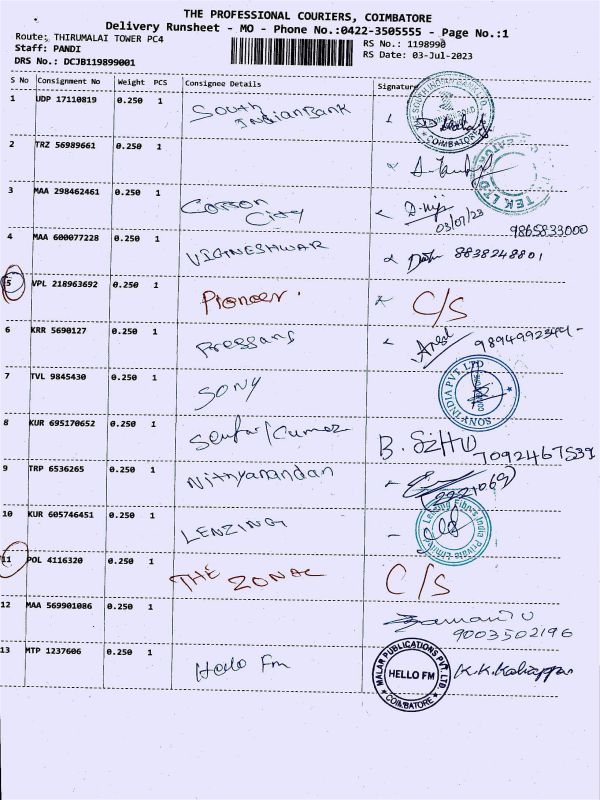 THE PROFESSIONAL COURIERS, COIMBATORE
Delivery Runsheet - MO - Phone No.:0422-3505555 - Page No.:1
Route: THIRUMALAI TOWER PC4
RS No.: 1198990
Staff: PANDI
RS Date: 03-Jul-2023
DRS No.: DCJB119899001
S No Consignment No Weight PCS Consignee Details Signature
1 UDP 17110819 0.250 1 South Indian Bank
COIMBATORE
2 TRZ 56989661 0.250 1
TEK LTD
3 MAA 298462461 0.250 1 Cotton City
03/07/23
9865833000
4 MAA 600077228 0.250 1 VIGNESHWAR 8838248801
5 VPL 218963692 0.250 1 Pioneer. C/S
6 KRR 5690127 0.250 1
7 TVL 9845430 0.250 1 SONY
SONY INDIA PVT. LTD
8 KUR 695170652 0.250 1 Kumar B.
7092467539
9 TRP 6536265 0.250 1 Nithyanandan
10 KUR 605746451 0.250 1 LENZING
Lenzing Fibers India Private Limited
11 POL 4116320 0.250 1 THE ZONE C/S
12 MAA 569901086 0.250 1
9003502196
13 MTP 1237606 0.250 1 Hello Fm
MALAR PUBLICATIONS PVT. LTD
HELLO FM
COIMBATORE